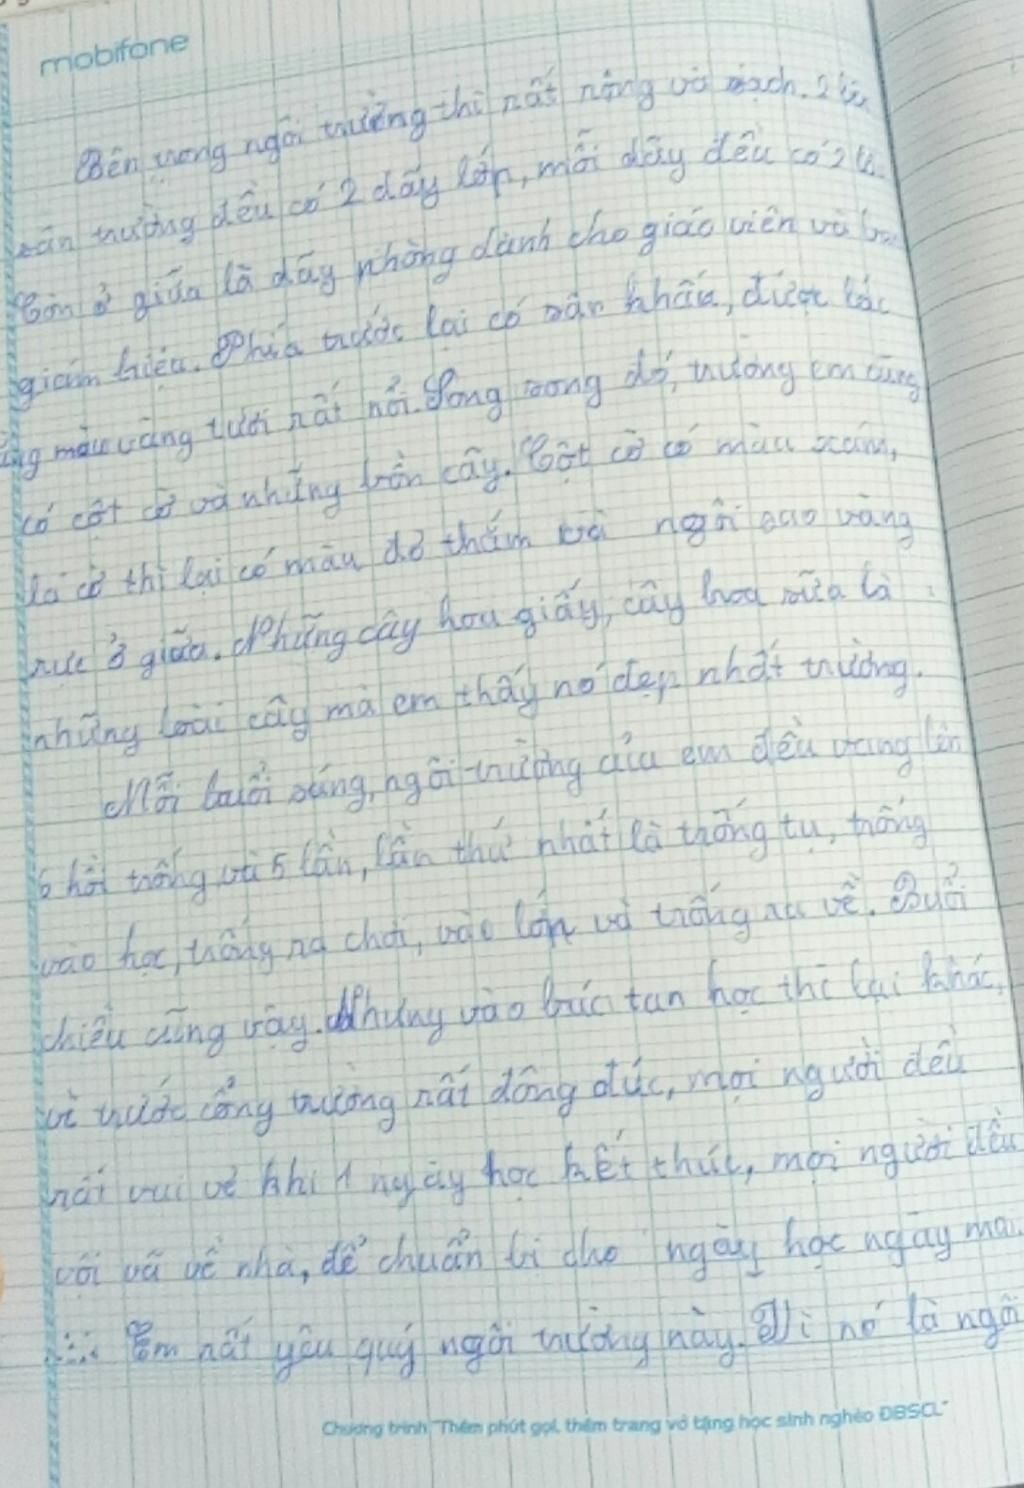 mobifone
Bên trong ngôi trường thì rất rộng và sạch. 2 bên
sân trường đều có 2 dãy lớp, mỗi dãy đều có 2
Còn ở giữa là dãy phòng dành cho giáo viên và ban
giám hiệu. Phía trước lại có sân khấu, được
màu vàng tươi rất nổi. Song song đó, trường em cũng
có cột cờ và những bồn cây. Cột cờ có màu xám,
lá cờ thì lại có màu đỏ thắm và ngôi sao vàng
rực ở giữa. Những cây hoa giấy, cây hoa sữa là
những loài cây mà em thấy nó đẹp nhất trường.
Mỗi buổi sáng, ngôi trường của em đều vang lên
hồi trống và 5 lần, lần thứ nhất là trống tụ, trống
vào học, trống ra chơi, vào lớp và trống ra về. Buổi
chiều cũng vậy. Nhưng vào lúc tan học thì lại khác,
vì trước cổng trường rất đông đúc, mọi người đều
rất vui vẻ khi 1 ngày học kết thúc, mọi người đều
vội vã về nhà, để chuẩn bị cho ngày học ngày mai.
Em rất yêu quý ngôi trường này. Vì nó là ngôi
Chương trình "Thêm phút gọi, thêm trang vở tặng học sinh nghèo ĐBSCL"